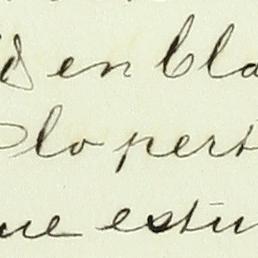 en bla
lo pert
ue estu